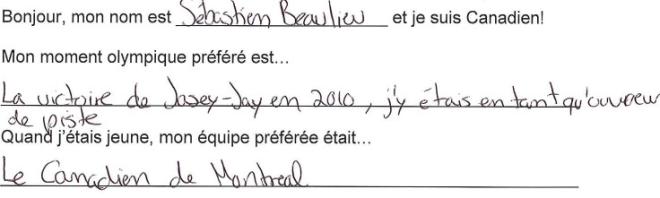 Bonjour, mon nom est Sébastien Beaulieu et je suis Canadien!
Mon moment olympique préféré est...
La victoire de Jasey-Jay en 2010, j'y étais en tant qu'ouvreur
de piste
Quand j'étais jeune, mon équipe préférée était...
Le Canadien de Montreal